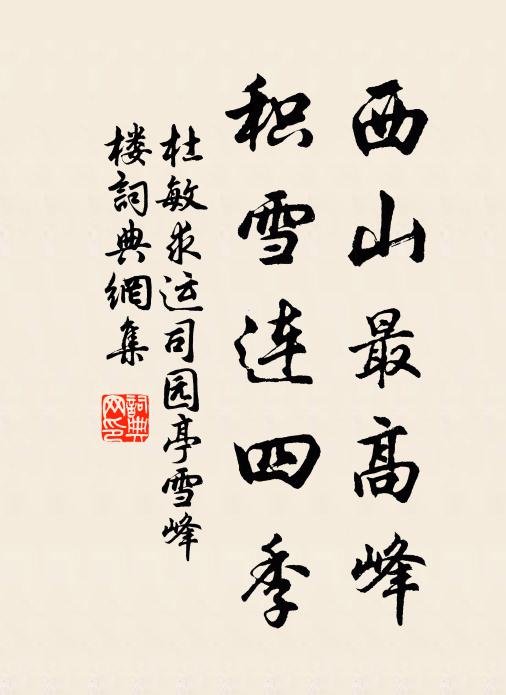 西山最高峰
积雪连四季
杜敏求运司园亭雪峰
楼词典網集
詞典
网印